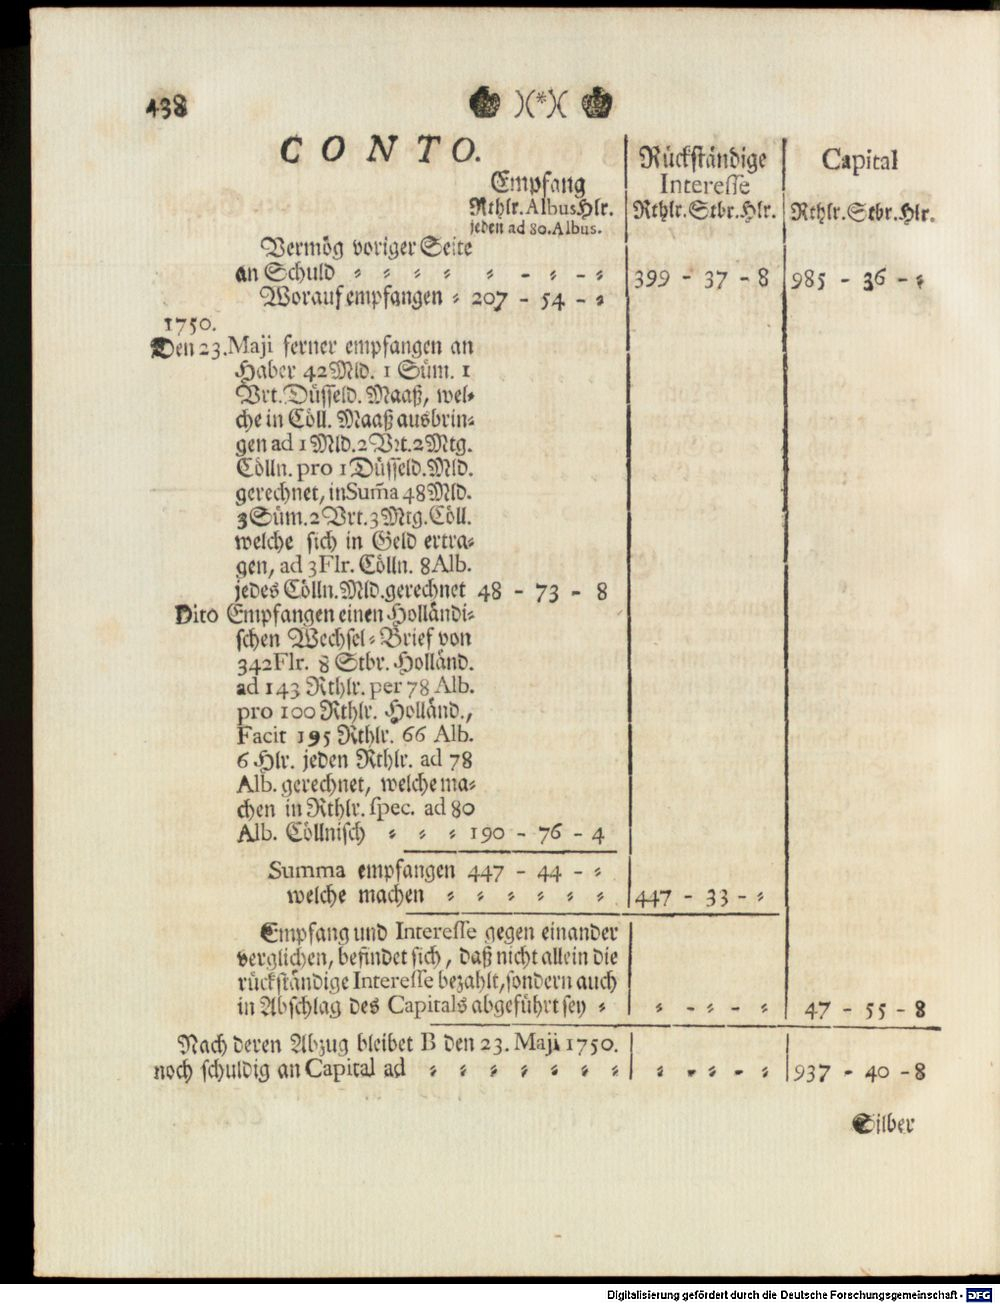 438 )(*)(
CONTO.
Empfang
Rthlr. Albus Hlr.
jeden ad 80. Albus.
Rückständige
Interesse
Rthlr. Stbr. Hlr.
Capital
Rthlr. Stbr. Hlr.
Vermög voriger Seite
an Schuld = = = = = - = - = 399 - 37 - 8 985 - 36 - =
Worauf empfangen = 207 - 54 - =
1750.
Den 23. Maji ferner empfangen an
Haber 42 Mld. 1 Süm. 1
Vrt. Düsseld. Maaß, wel=
che in Cöll. Maaß ausbrin=
gen ad 1 Mld. 2 Vrt. 2 Mtg.
Cölln. pro 1 Düsseld. Mld.
gerechnet, in Sum̃a 48 Mld.
3 Süm. 2 Vrt. 3 Mtg. Cöll.
welche sich in Geld ertra=
gen, ad 3 Flr. Cölln. 8 Alb.
jedes Cölln. Mld. gerechnet 48 - 73 - 8
Dito Empfangen einen Holländi=
schen Wechsel=Brief von
342 Flr. 8 Stbr. Holländ.
ad 143 Rthlr. per 78 Alb.
pro 100 Rthlr. Holländ.,
Facit 195 Rthlr. 66 Alb.
6 Hlr. jeden Rthlr. ad 78
Alb. gerechnet, welche ma=
chen in Rthlr. spec. ad 80
Alb. Cöllnisch = = = 190 - 76 - 4
Summa empfangen 447 - 44 - =
welche machen = = = = = = 447 - 33 - =
Empfang und Interesse gegen einander
verglichen, befindet sich, daß nicht allein die
rückständige Interesse bezahlt, sondern auch
in Abschlag des Capitals abgeführt sey = = - = - = 47 - 55 - 8
Nach deren Abzug bleibet B den 23. Maji 1750.
noch schuldig an Capital ad = = = = = = = = - = - = 937 - 40 - 8
Silber
Digitalisierung gefördert durch die Deutsche Forschungsgemeinschaft - DFG